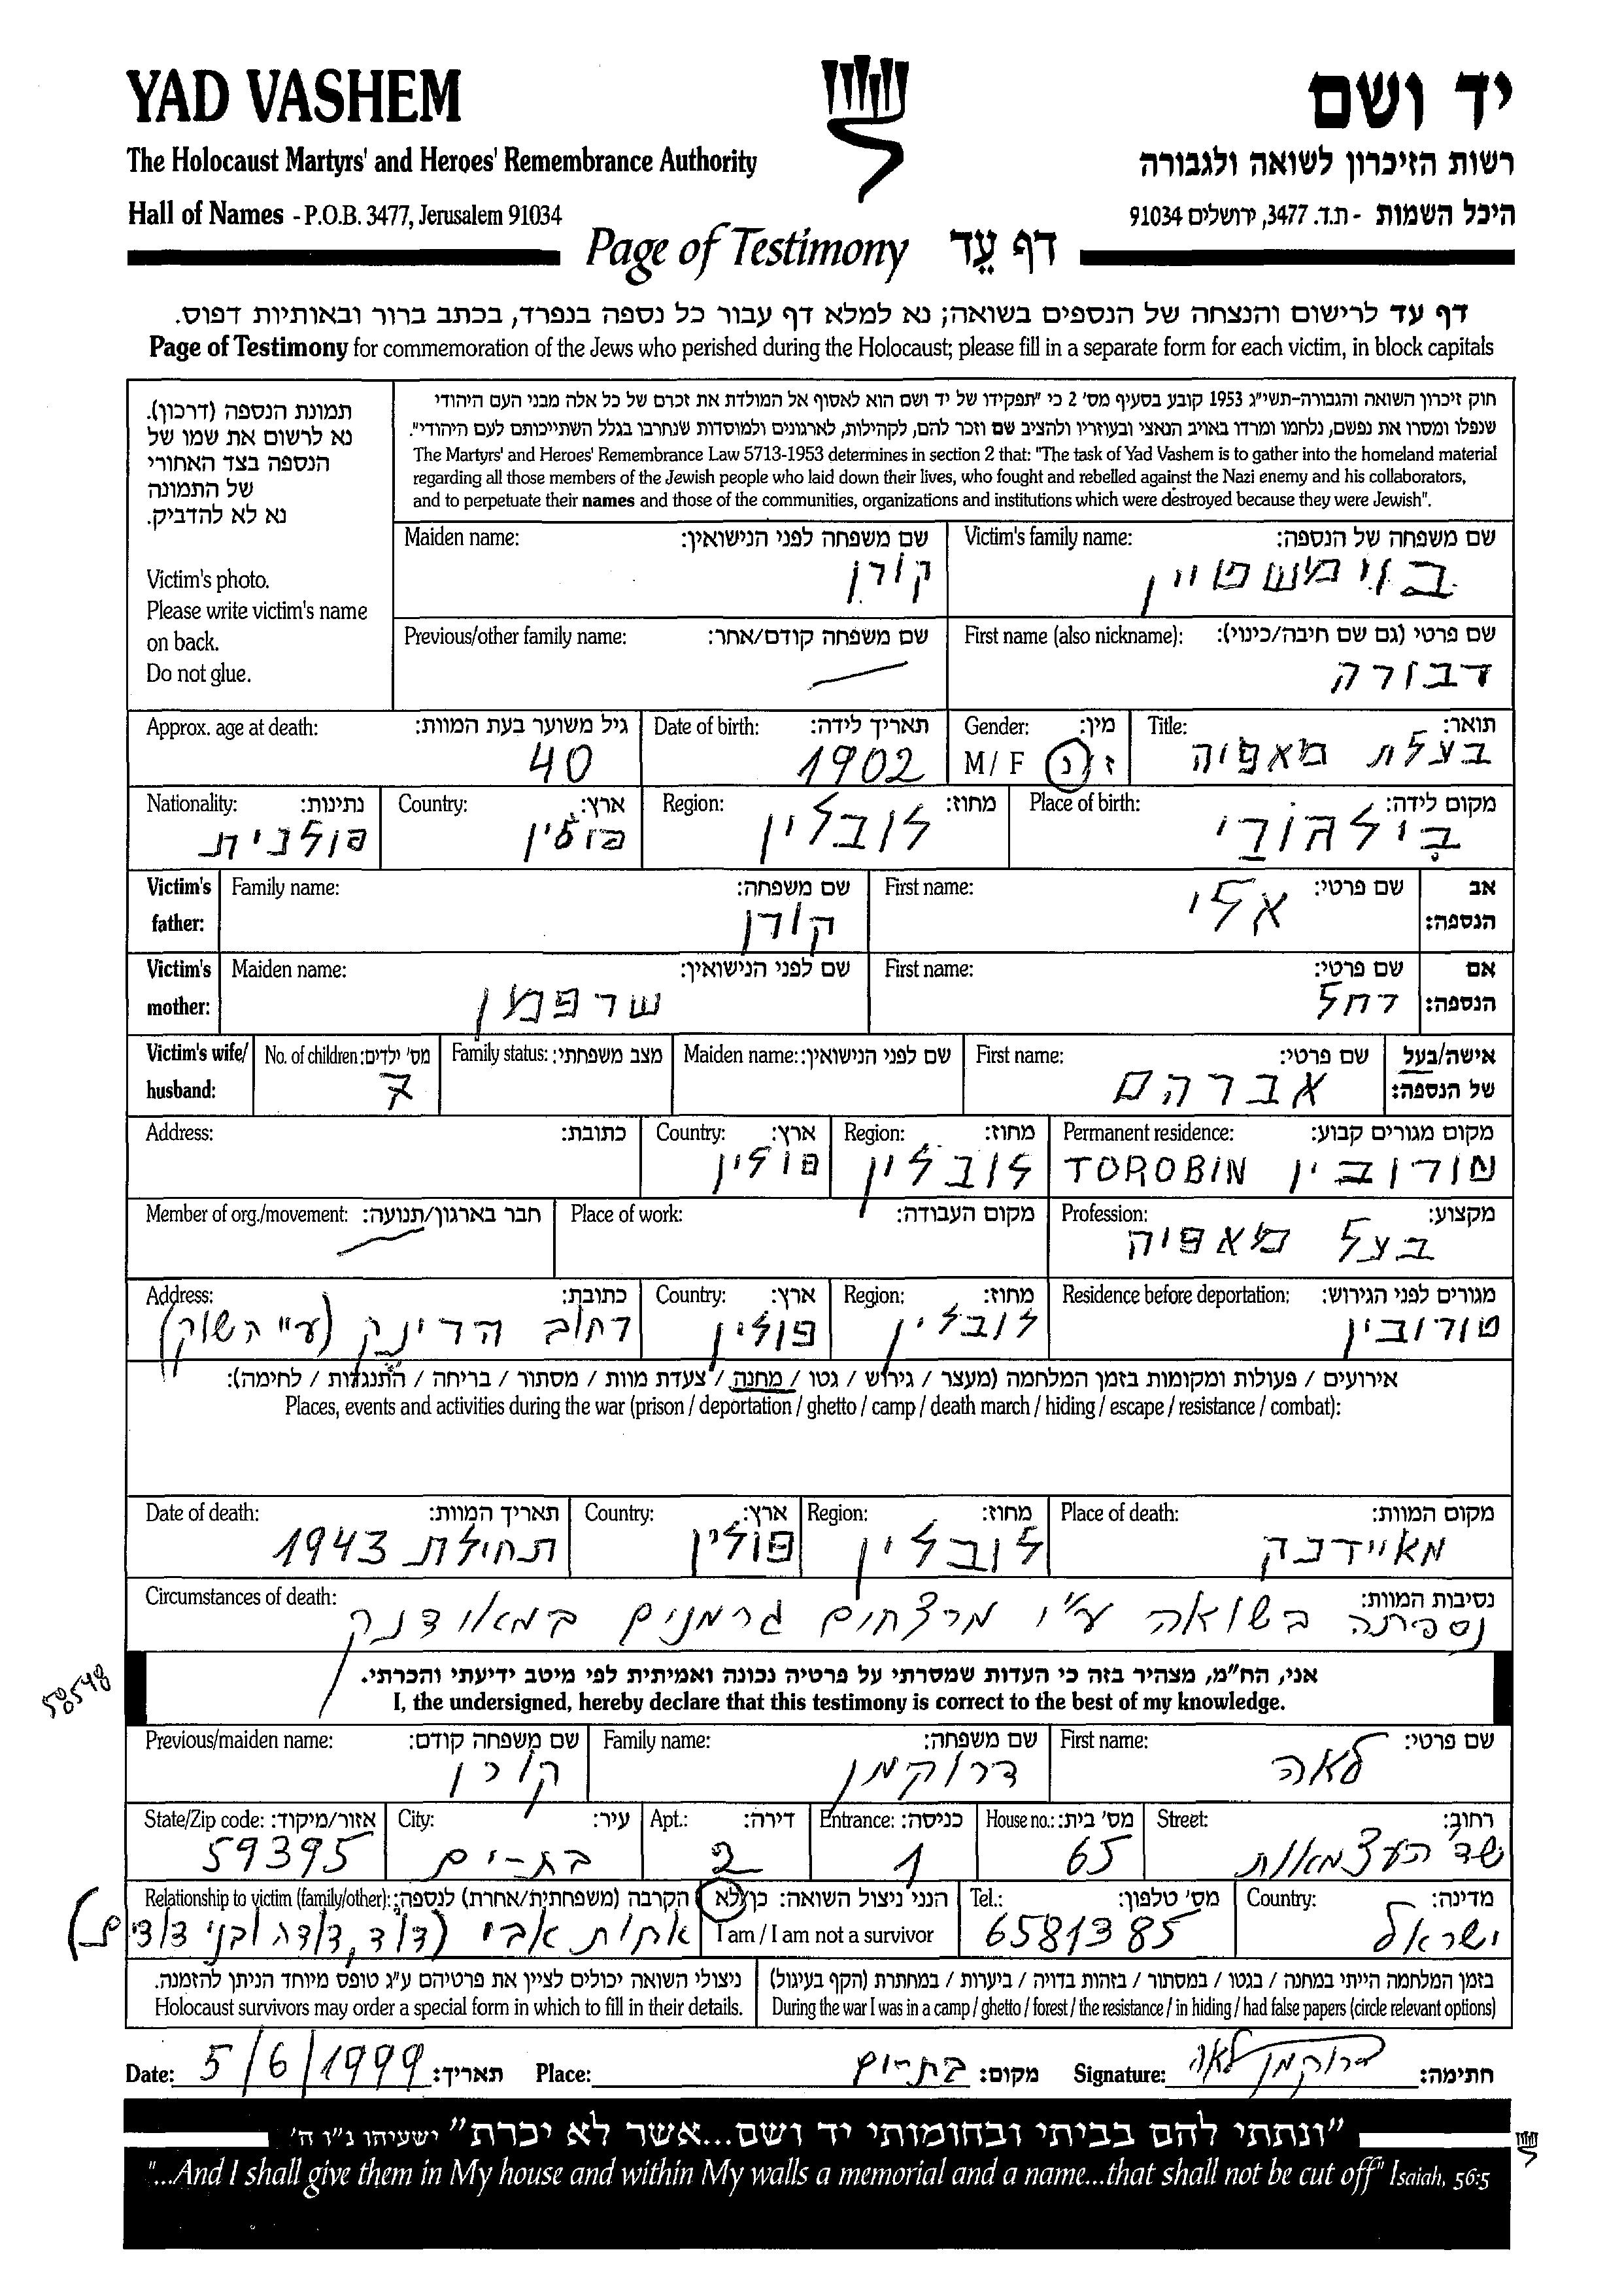 YAD VASHEM
יד ושם
The Holocaust Martyrs' and Heroes' Remembrance Authority
רשות הזיכרון לשואה ולגבורה
Hall of Names - P.O.B. 3477, Jerusalem 91034
היכל השמות - ת.ד. 3477, ירושלים 91034
Page of Testimony דף עֵד
דף עד לרישום והנצחה של הנספים בשואה; נא למלא דף עבור כל נספה בנפרד, בכתב ברור ובאותיות דפוס.
Page of Testimony for commemoration of the Jews who perished during the Holocaust; please fill in a separate form for each victim, in block capitals
תמונת הנספה (דרכון).
נא לרשום את שמו של
הנספה בצד האחורי
של התמונה
נא לא להדביק.
Victim's photo.
Please write victim's name
on back.
Do not glue.
חוק זיכרון השואה והגבורה-תשי"ג 1953 קובע בסעיף מס' 2 כי "תפקידו של יד ושם הוא לאסוף אל המולדת את זכרם של כל אלה מבני העם היהודי
שנפלו ומסרו את נפשם, נלחמו ומרדו באויב הנאצי ובעוזריו ולהציב שם וזכר להם, לקהילות, לארגונים ולמוסדות שנחרבו בגלל השתייכותם לעם היהודי".
The Martyrs' and Heroes' Remembrance Law 5713-1953 determines in section 2 that: "The task of Yad Vashem is to gather into the homeland material
regarding all those members of the Jewish people who laid down their lives, who fought and rebelled against the Nazi enemy and his collaborators,
and to perpetuate their names and those of the communities, organizations and institutions which were destroyed because they were Jewish".
שם משפחה של הנספה: Victim's family name: שם משפחה לפני הנישואין: Maiden name:
קורן
שם פרטי (גם שם חיבה/כינוי): First name (also nickname): שם משפחה קודם/אחר: Previous/other family name:
דבורה
תואר: Title: מין: Gender: תאריך לידה: Date of birth: גיל משוער בעת המוות: Approx. age at death:
בעלת מאפיה ז/נ M/F 1902 40
מקום לידה: Place of birth: מחוז: Region: ארץ: Country: נתינות: Nationality:
בִּילגוֹרַי לובלין פולין פולנית
אב שם פרטי: First name: שם משפחה: Family name: Victim's
הנספה: אלי קורן father:
אם שם פרטי: First name: שם לפני הנישואין: Maiden name: Victim's
הנספה: רחל שרפמן mother:
אישה/בעל שם פרטי: First name: שם לפני הנישואין: Maiden name: מצב משפחתי: Family status: מס' ילדים: No. of children: Victim's wife/
של הנספה: אברהם 7 husband:
מקום מגורים קבוע: Permanent residence: מחוז: Region: ארץ: Country: כתובת: Address:
טורובין TOROBIN לובלין פולין
מקצוע: Profession: מקום העבודה: Place of work: חבר בארגון/תנועה: Member of org./movement:
בעל מאפיה
מגורים לפני הגירוש: Residence before deportation: מחוז: Region: ארץ: Country: כתובת: Address:
טורובין לובלין פולין רחוב הרינק (ע"י השוק)
אירועים / פעולות ומקומות בזמן המלחמה (מעצר / גירוש / גטו / מחנה / צעדת מוות / מסתור / בריחה / התנגדות / לחימה):
Places, events and activities during the war (prison / deportation / ghetto / camp / death march / hiding / escape / resistance / combat):
מקום המוות: Place of death: מחוז: Region: ארץ: Country: תאריך המוות: Date of death:
מאיידנק לובלין פולין תחילת 1943
נסיבות המוות: Circumstances of death:
נספתה בשואה ע"י מרצחים גרמנים במאידנק
אני, הח"מ, מצהיר בזה כי העדות שמסרתי על פרטיה נכונה ואמיתית לפי מיטב ידיעתי והכרתי.
58548
I, the undersigned, hereby declare that this testimony is correct to the best of my knowledge.
שם פרטי: First name: שם משפחה: Family name: שם משפחה קודם: Previous/maiden name:
לאה דרוקמן קורן
רחוב: Street: מס' בית: House no.: כניסה: Entrance: דירה: Apt.: עיר: City: אזור/מיקוד: State/Zip code:
שד' העצמאות 65 1 2 בת-ים 59395
מדינה: Country: מס' טלפון: Tel.: הנני ניצול השואה: כן/לא הקרבה (משפחתית/אחרת) לנספה: Relationship to victim (family/other):
ישראל 6581385 I am / I am not a survivor אחות אבי (דוד, דודה ובני דודים)
בזמן המלחמה הייתי במחנה / בגטו / במסתור / בזהות בדויה / ביערות / במחתרת (הקף בעיגול) ניצולי השואה יכולים לציין את פרטיהם ע"ג טופס מיוחד הניתן להזמנה.
During the war I was in a camp / ghetto / forest / the resistance / in hiding / had false papers (circle relevant options) Holocaust survivors may order a special form in which to fill in their details.
חתימה: דרוקמן לאה Signature: מקום: בת-ים Place: תאריך: 5/6/1999 Date:
"ונתתי להם בביתי ובחומותי יד ושם...אשר לא יכרת" ישעיהו נ"ו ה'
"...And I shall give them in My house and within My walls a memorial and a name...that shall not be cut off" Isaiah, 56:5